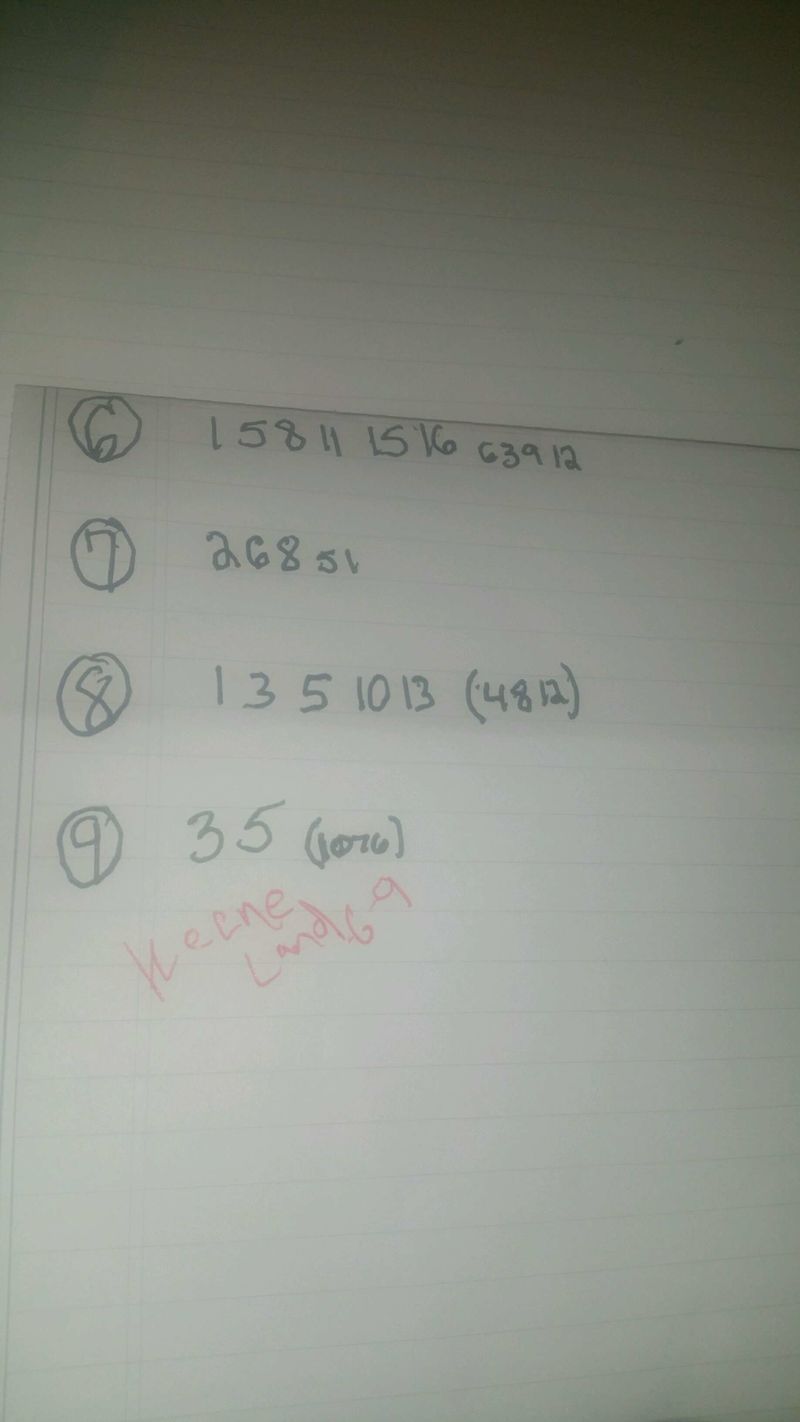 6 1 5 8 11 15 16 6 3 9 12
7 2 6 8 5 1
8 1 3 5 10 13 (4 8 12)
9 3 5
Keene
Land 6 9